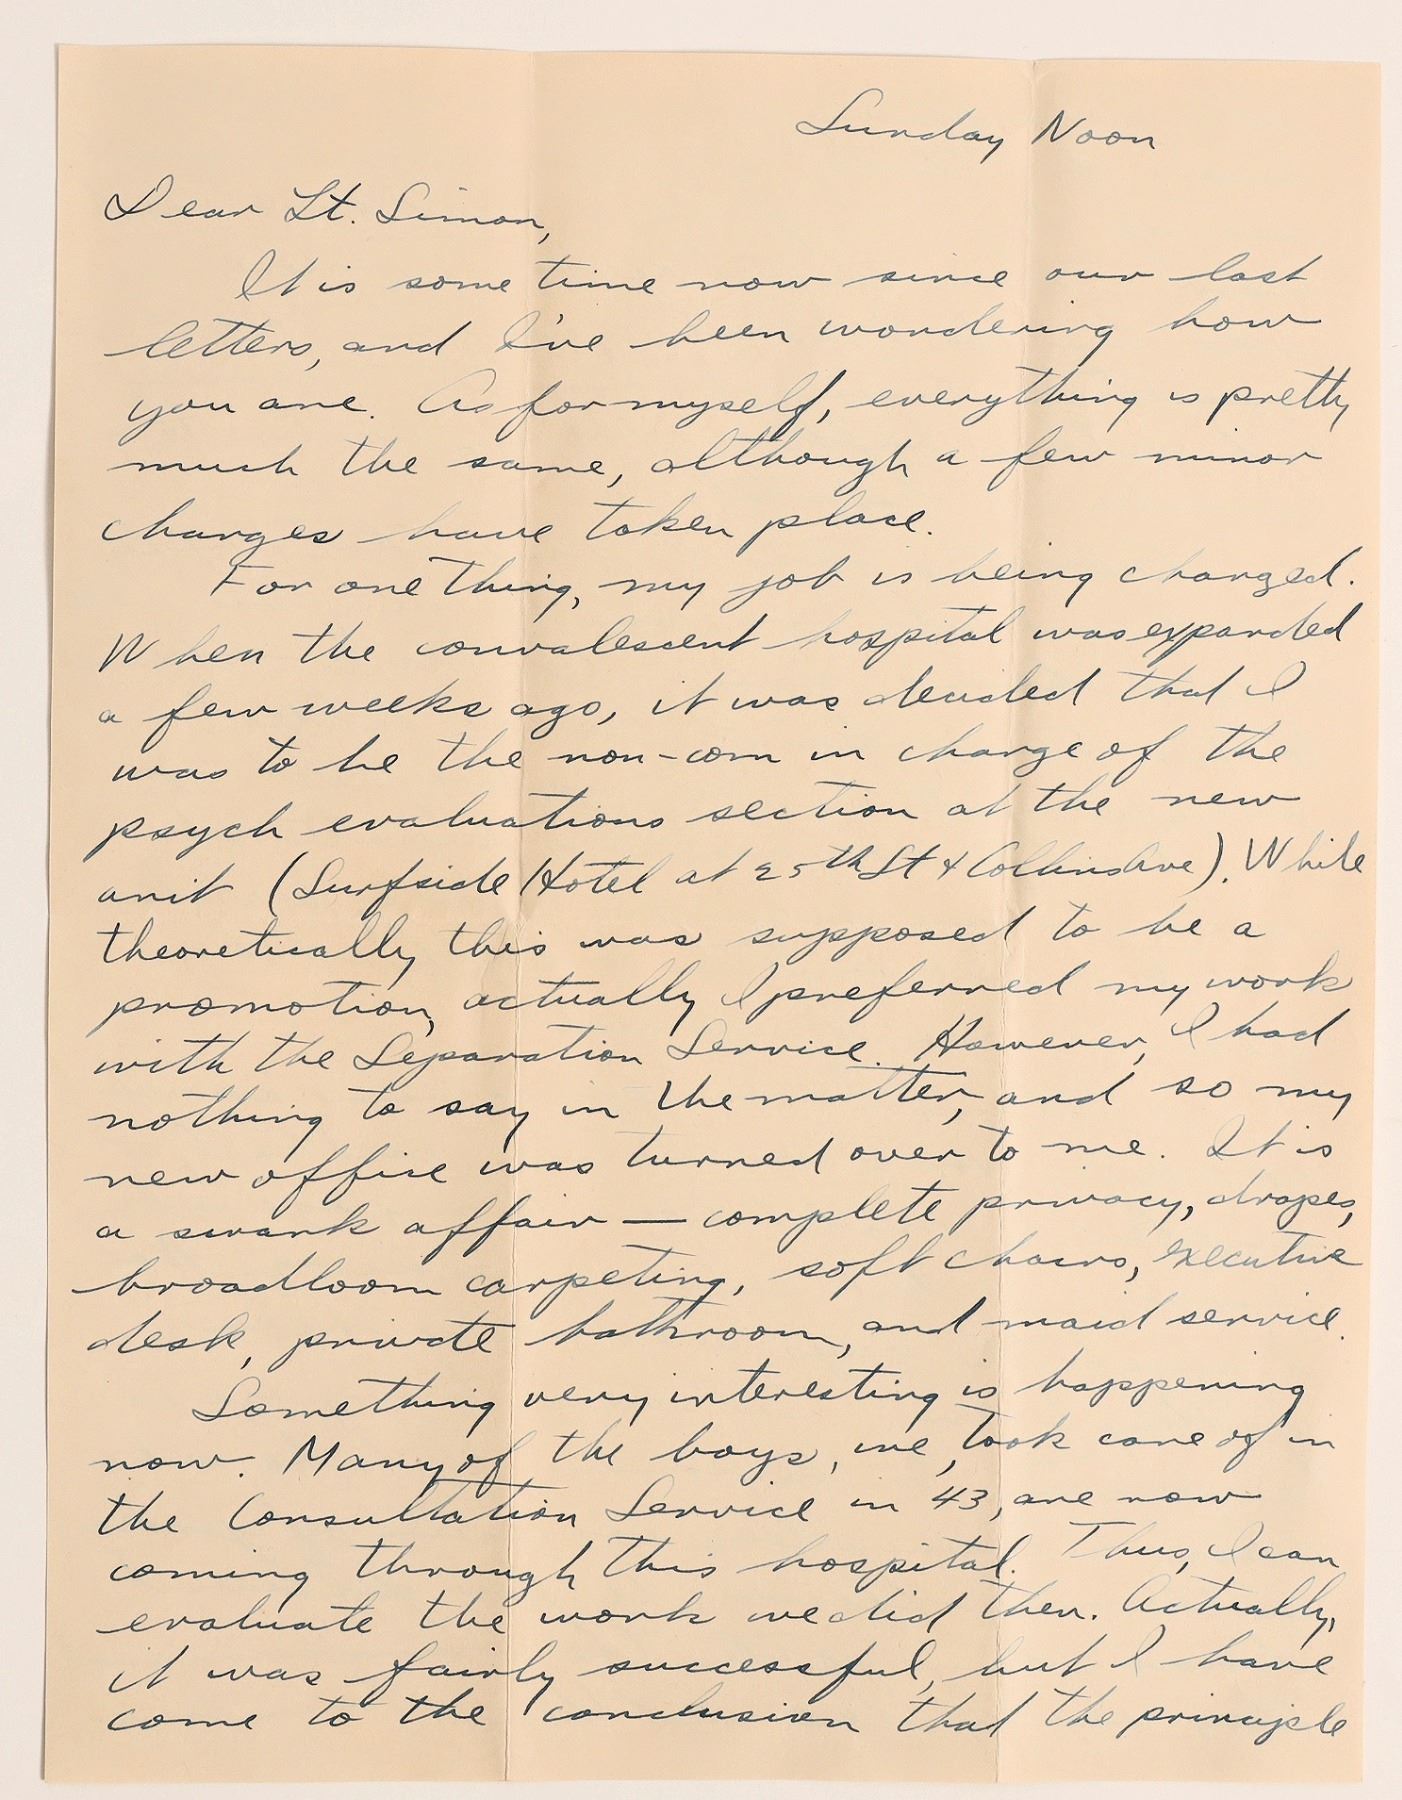 Sunday Noon
Dear Lt. Simon,
It is some time now since our last
letters, and I've been wondering how
you are. As for myself, everything is pretty
much the same, although a few minor
changes have taken place.
For one thing, my job is being changed.
When the convalescent hospital was expanded
a few weeks ago, it was decided that I
was to be the non-com in charge of the
psych evaluations section at the new
unit (Surfside Hotel at 25th St & Collins Ave). While
theoretically this was supposed to be a
promotion, actually I preferred my work
with the Separation Service. However, I had
nothing to say in the matter, and so my
new office was turned over to me. It is
a swank affair — complete privacy, drapes,
broadloom carpeting, soft chairs, executive
desk, private bathroom, and maid service.
Something very interesting is happening
now. Many of the boys, we, took care of in
the Consultation Service in 43, are now
coming through this hospital. Thus, I can
evaluate the work we did then. Actually,
it was fairly successful, but I have
come to the conclusion that the principle